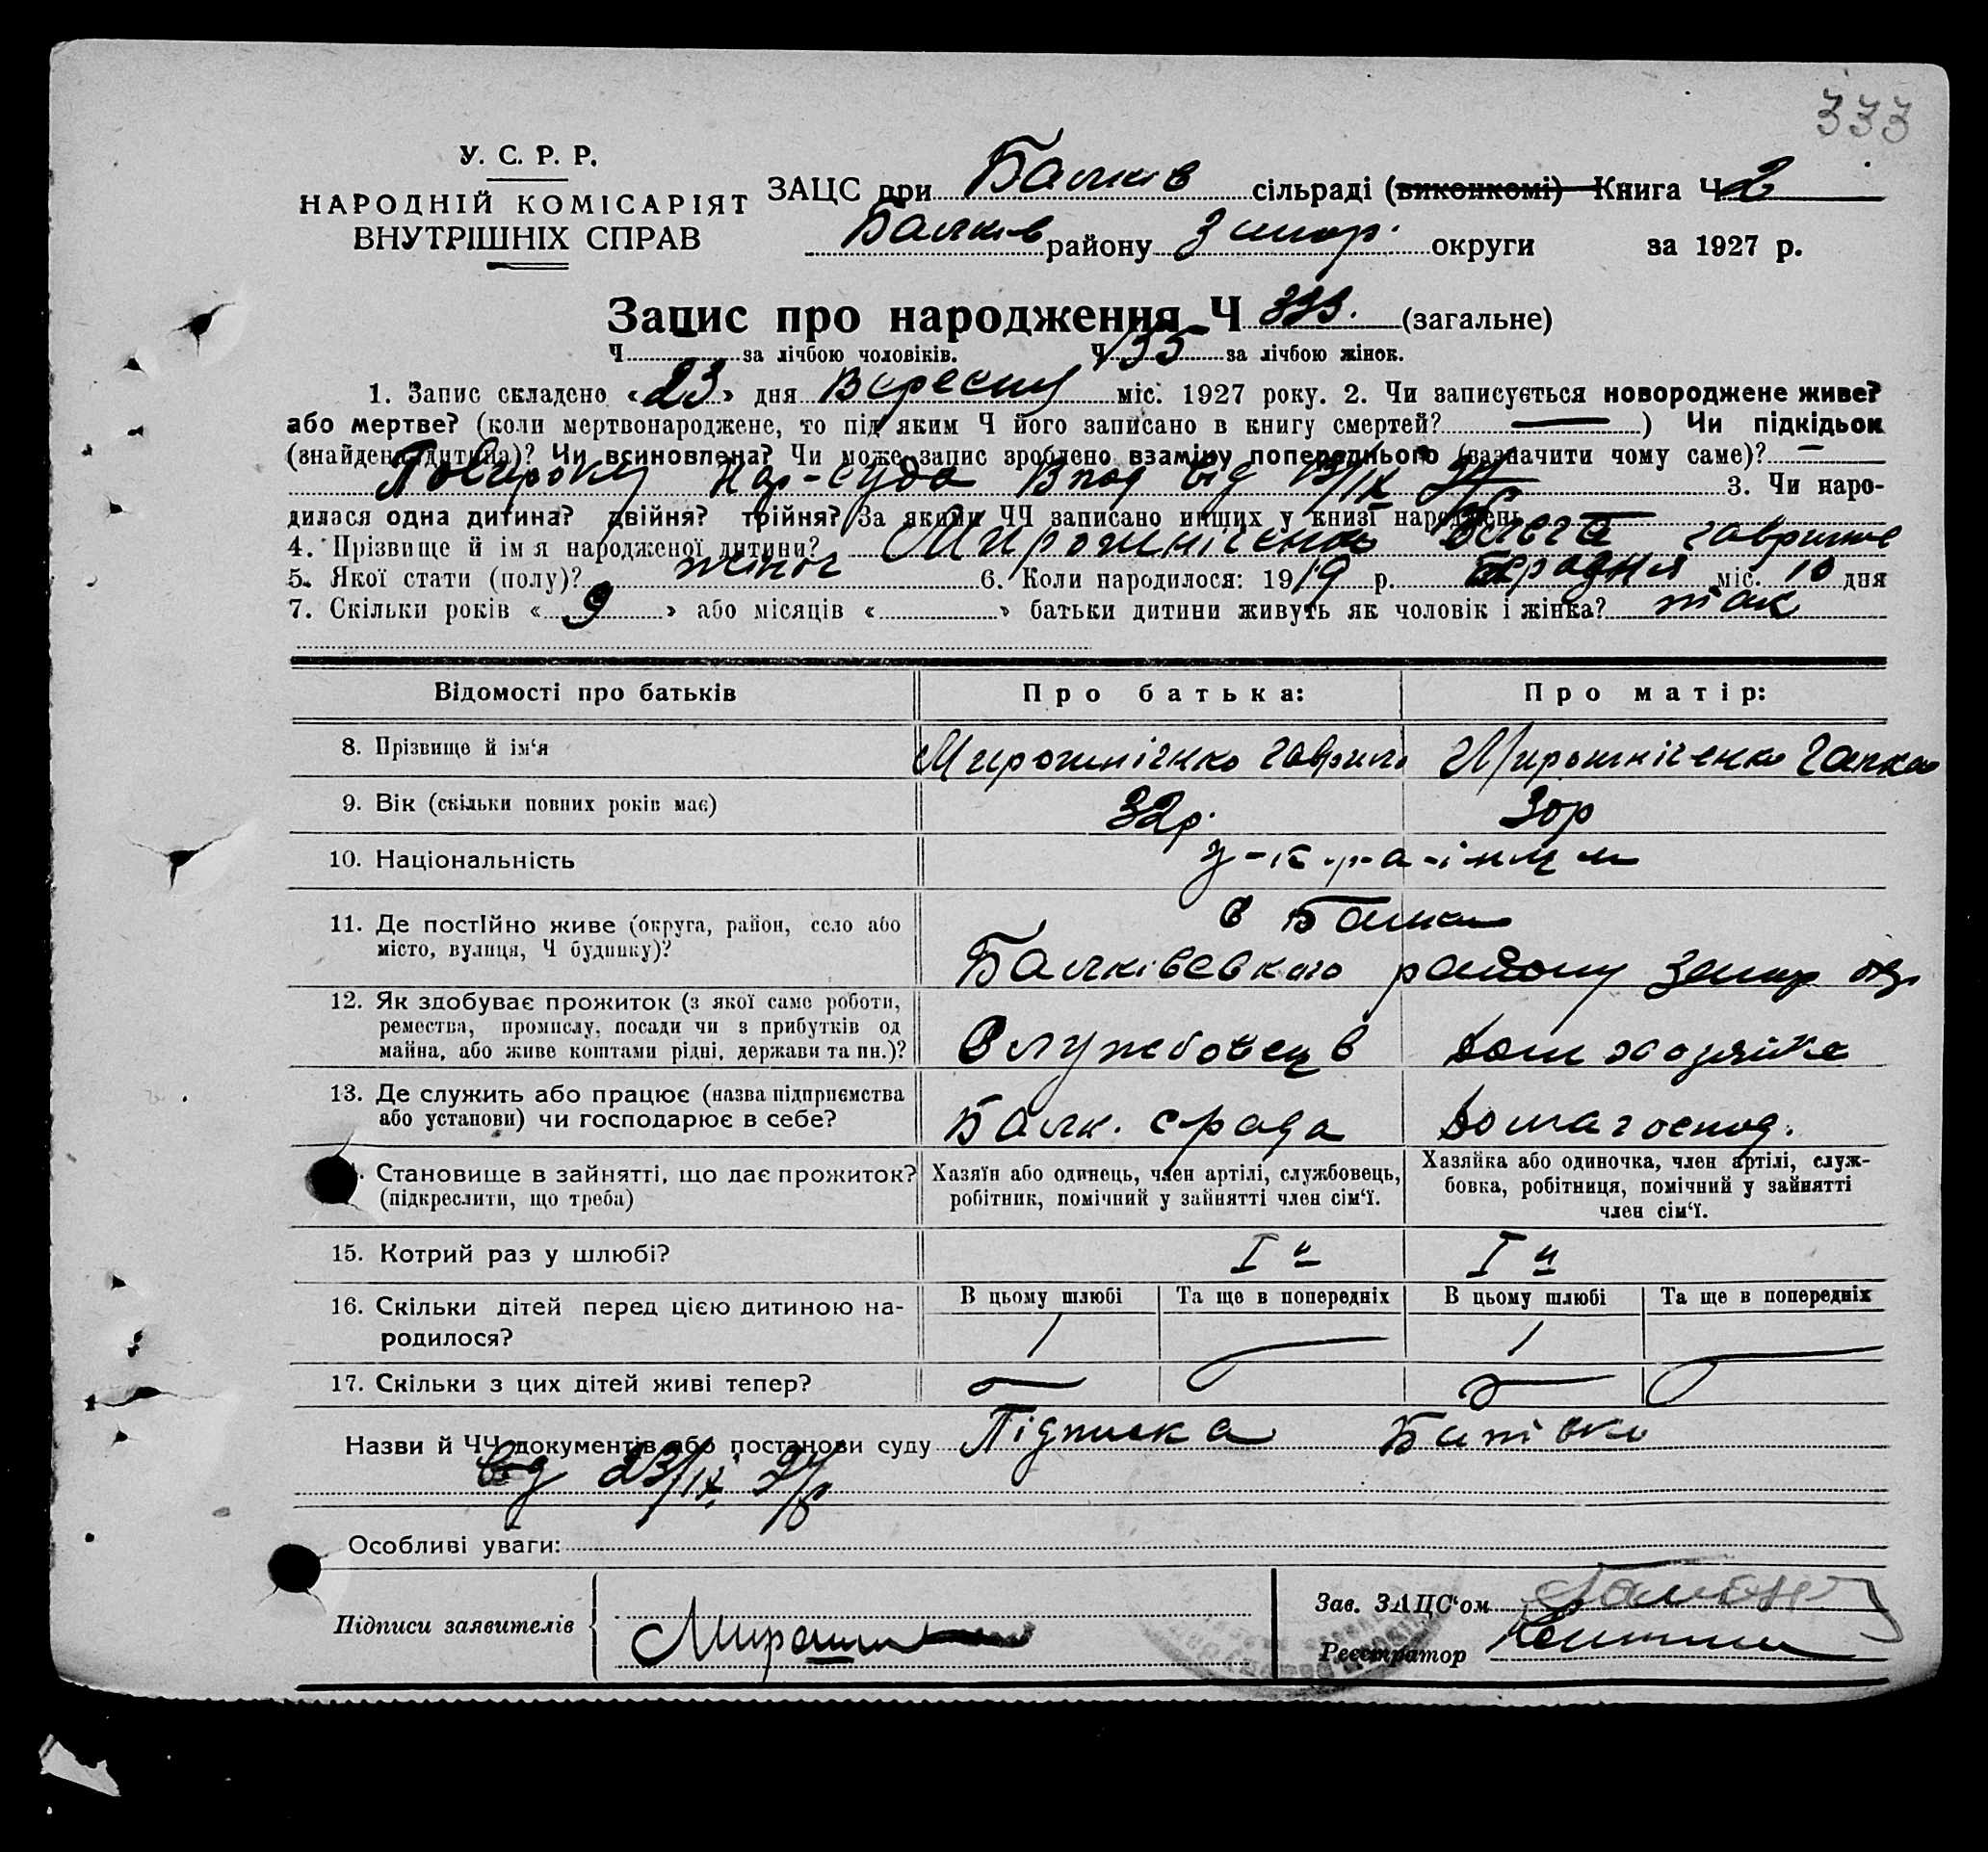 333
У. С. Р. Р.
НАРОДНІЙ КОМІСАРІЯТ
ВНУТРІШНІХ СПРАВ
ЗАЦС при Балків сільраді (виконкомі) Книга Ч 2
Балків району Запор. округи за 1927 р.
Запис про народження Ч 333. (загальне)
Ч за лічбою чоловіків. Ч 155 за лічбою жінок.
1. Запис складено «23» дня Вересня міс. 1927 року. 2. Чи записується новороджене живе?
або мертве? (коли мертвонароджене, то під яким Ч його записано в книгу смертей? —) Чи підкідьок
(знайдена дитина)? Чи всиновлена? Чи може запис зроблено взаміну попереднього (зазначити чому саме)? —
По вироку Нар-суда від 13/IX 3. Чи наро-
дилася одна дитина? двійня? трійня? За якими ЧЧ записано инших у книзі народжень
4. Прізвище й ім'я народженої дитини? Мирошніченко
5. Якої стати (полу)? жіноч 6. Коли народилося: 1919 р. міс. 10 дня
7. Скільки років «9» або місяців « » батьки дитини живуть як чоловік і жінка? так
Відомості про батьків Про батька: Про матір:
8. Прізвище й ім'я Мирошнічнко Гаврило Мирошніченко Галка
9. Вік (скільки повних років має) 32р. 30р
10. Національність у-к-р-а-інци
11. Де постійно живе (округа, район, село або
місто, вулиця, Ч будинку)? в Балках
Балківського району Запор окр
12. Як здобуває прожиток (з якої саме роботи,
ремества, промислу, посади чи з прибутків од
майна, або живе коштами рідні, держави та ин.)? Службовець Дом хозяйка
13. Де служить або працює (назва підприємства
або установи) чи господарює в себе? Балк. срада Дома господ.
Становище в зайнятті, що дає прожиток?
(підкреслити, що треба)
Хазяїн або одинець, член артілі, службовець,
робітник, помічний у зайнятті член сім'ї.
Хазяйка або одиночка, член артілі, служ-
бовка, робітниця, помічний у зайнятті
член сім'ї.
15. Котрий раз у шлюбі? I й I й
16. Скільки дітей перед цією дитиною на-
родилося?
В цьому шлюбі Та ще в попередніх В цьому шлюбі Та ще в попередніх
1 — 1 —
17. Скільки з цих дітей живі тепер? — — — —
Назви й ЧЧ документів або постанови суду Підписка Батівка
від 23/IX 27р
Особливі уваги:
Підписи заявителів Мирошни
Зав. ЗАЦС'ом
Реєстратор